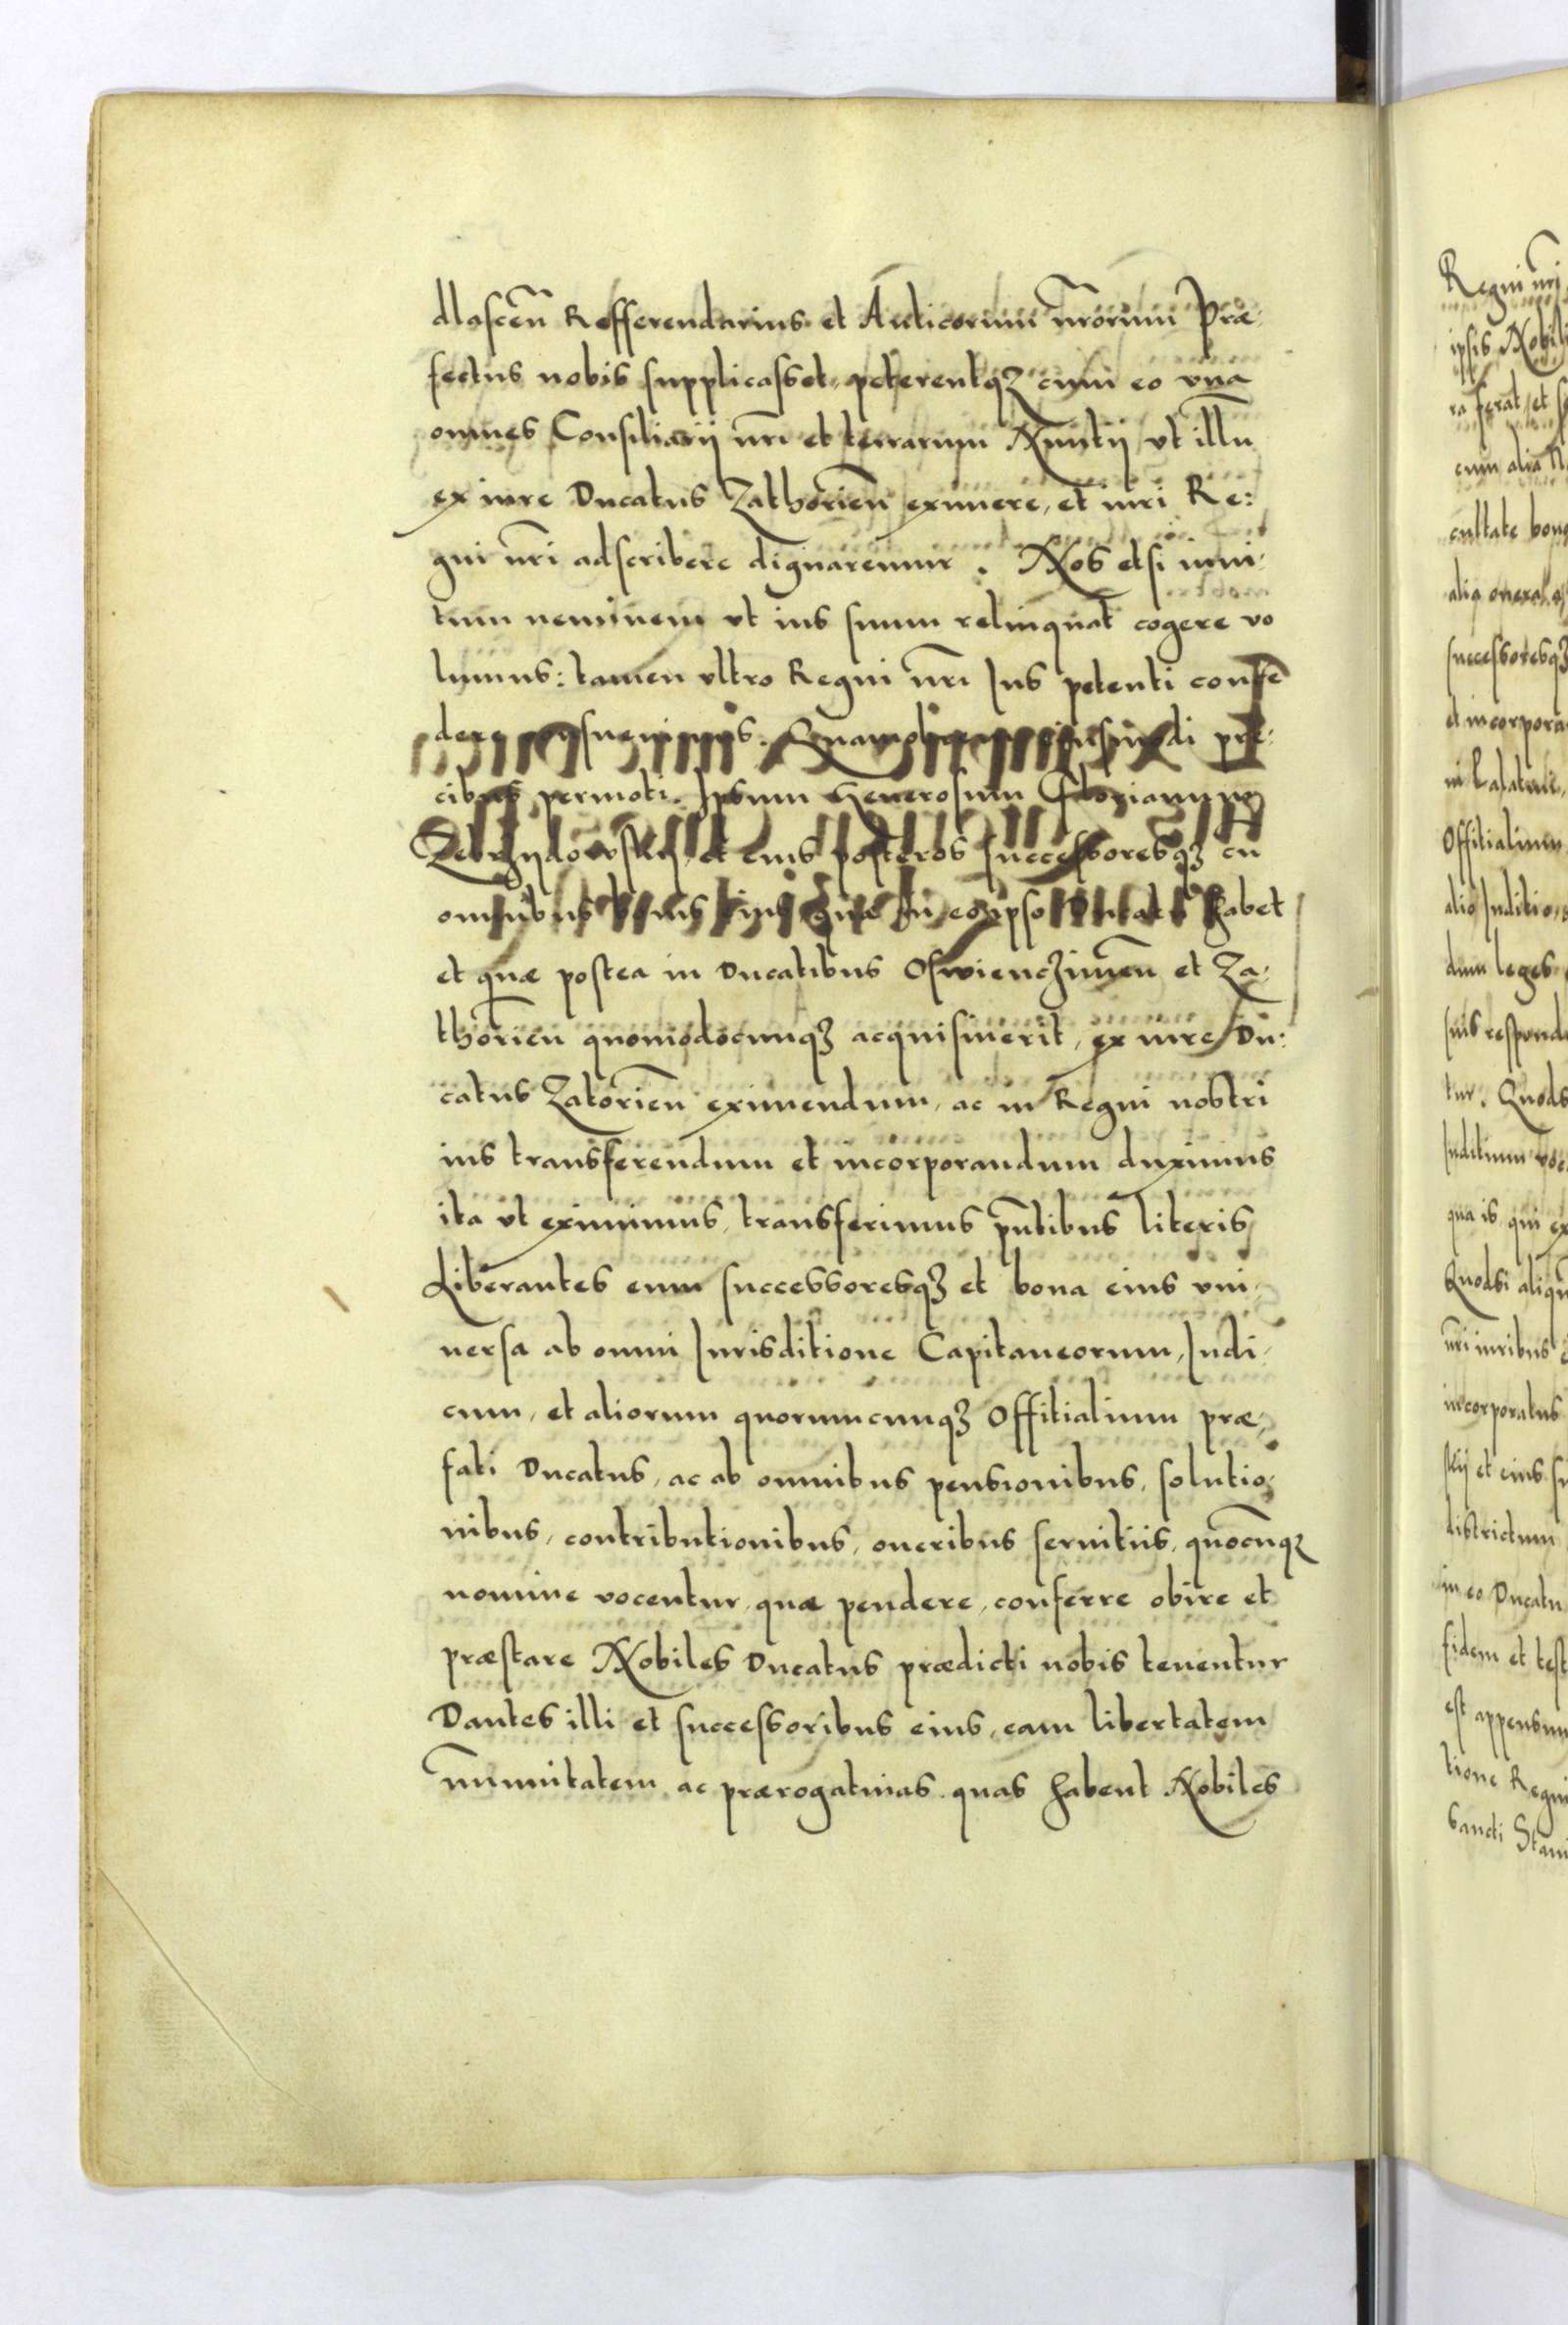 dlascen̄ Refferendarius et Aulicorum nr̄orum Præ-
fectus nobis supplicasset, peterentq3 cum eo vna
omnes Consiliarij nr̄i et terrarum Nuntij vt illu
ex iure Ducatus Zathorien̄ eximere, et iuri Re:
gni nr̄i adscribere dignaremur. Nos etsi inui-
tum neminem vt ius suum relinquat cogere vo
lumus: tamen vltro Regni nr̄i Ius petenti
dere Quamobrem pre-
cibus permoti. Ipsum Generosum Florianum
Zebrzijdowskij, et eius posteros successoresq3 cū
omnibus bonis eius quæ in eo ipso Ducatu habet
et quæ postea in Ducatibus Oswienczimen̄ et Za-
thorien̄ quomodocunq3 acquisiuerit, ex iure Du:
catus Zatorien̄ eximendum, ac in Regni nostri
ius transferendum et incorporandum duximus
ita vt eximimus, transferimus pn̄tibus literis
Liberantes eum successoresq3 et bona eius vni-
uersa ab omni Iurisditione Capitaneorum, Iudi-
cum, et aliorum quorumcunq3 Offitialium præ-
fati Ducatus, ac ab omnibus pensionibus, solutio-
nibus, contributionibus, oneribus seruitiis, quocūq3
nomine vocentur, quæ pendere, conferre obire et
præstare Nobiles Ducatus prædicti nobis tenentur
Dantes illi et successoribus eius, eam libertatem
im̄unitatem, ac prærogatiuas, quas habent Nobiles
Regni nr̄i
ipsis
ra ferat, et
cum alia
cultate
alia onera
successoresq3
et incorpora
Offitialium
alio Iuditio
dum leges
suis responde
tur. Quods
Iuditium
qua is qui ex
Quodsi
nr̄i iuribus
incorporatus
skij et eius
districtum
in eo Ducatu
fidem et test
est appensum
tione Regni
Sancti Stani